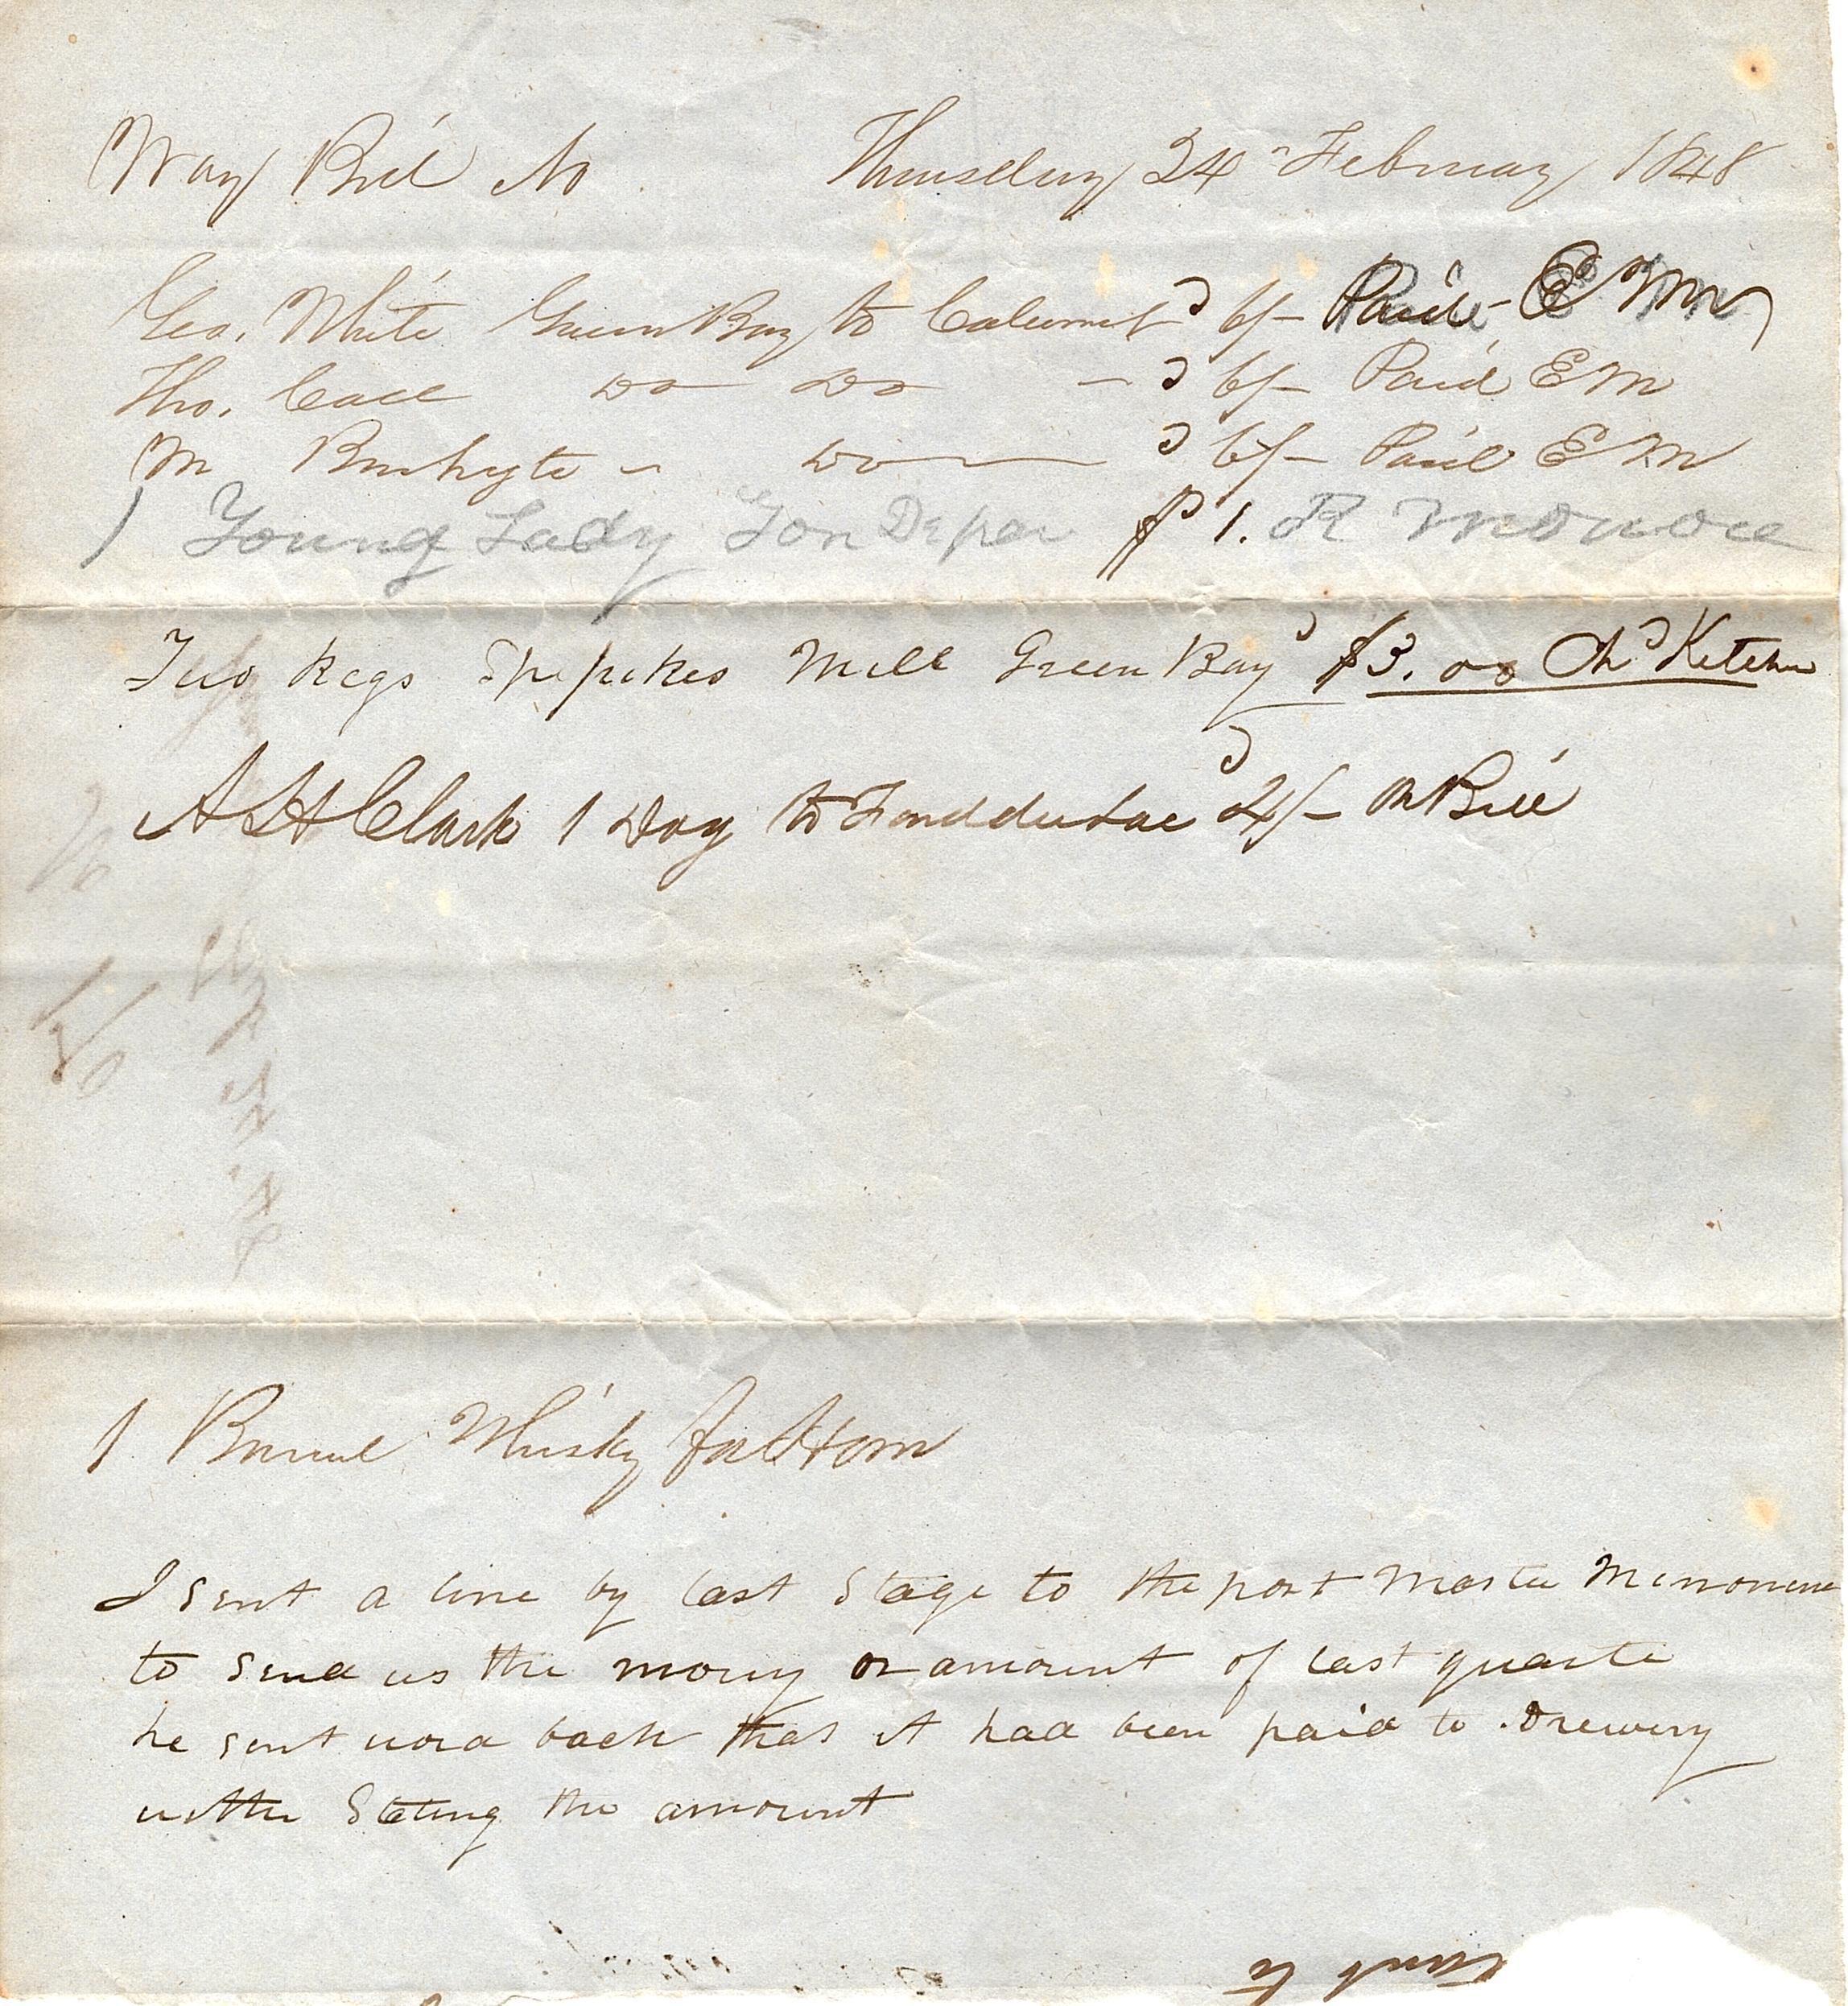 Way Bill No Thursday 24 February 1848
Geo. White Green Bay to Calumet 6/- Paid E M
Tho. Call Do Do 6/- Paid E M
M Do 6/- Paid E M
1 Young Lady Fon Deper $1. R Monroe
Two Kegs Spikes Mill Green Bay $3.00 Chd Ketchu
A H Clark 1 Dog to Fond du Lac 4/- Bill
1 Barrel Whisky for Horn
I sent a line by last Stage to the post Master
to send us the mony or amount of last quarte
he sent word back that it had been paid to Drewery
the amount